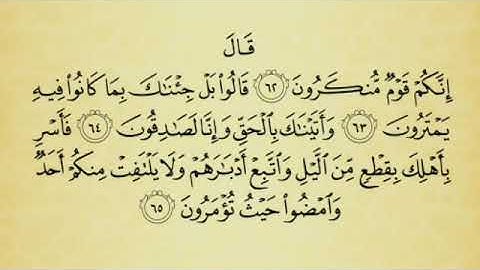 قَالَ
إِنَّكُمْ قَوْمٌ مُّنكَرُونَ ٦٢ قَالُوا۟ بَلْ جِئْنَٰكَ بِمَا كَانُوا۟ فِيهِ
يَمْتَرُونَ ٦٣ وَأَتَيْنَٰكَ بِٱلْحَقِّ وَإِنَّا لَصَٰدِقُونَ ٦٤ فَأَسْرِ
بِأَهْلِكَ بِقِطْعٍ مِّنَ ٱلَّيْلِ وَٱتَّبِعْ أَدْبَٰرَهُمْ وَلَا يَلْتَفِتْ مِنكُمْ أَحَدٌ
وَٱمْضُوا۟ حَيْثُ تُؤْمَرُونَ ٦٥